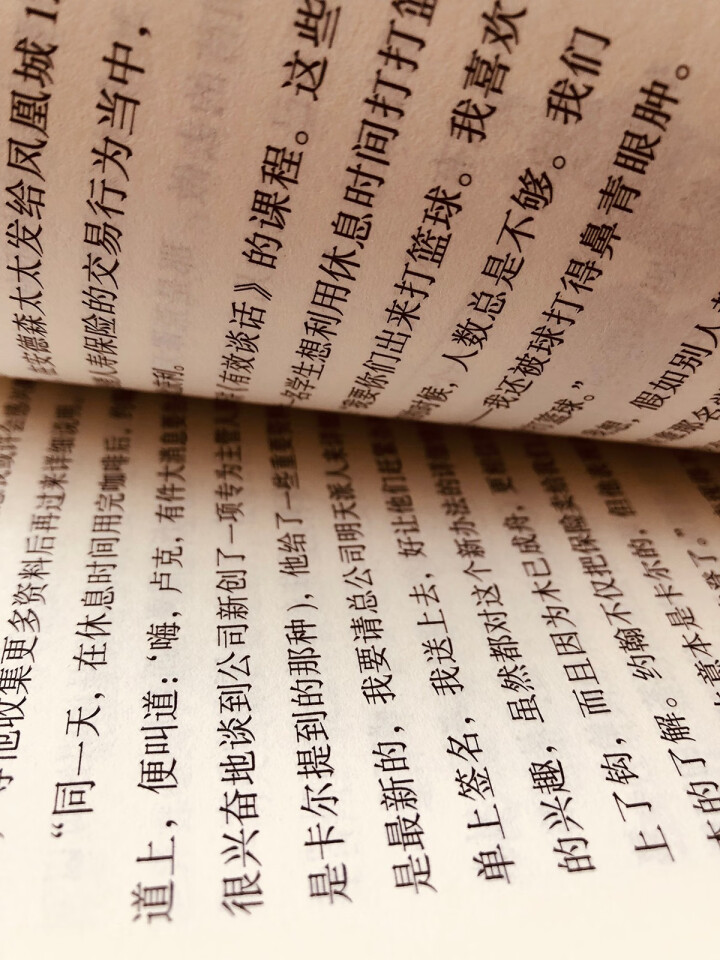 他收集更多资料后再过来详细说明
“同一天，在休息时间用完咖啡后，
道上，便叫道：‘嗨，卢克，有件大消息要
很兴奋地谈到公司新创了一项专为主管人
是卡尔提到的那种)，他给了一些重要
是最新的，我要请总公司明天派人来
单上签名，我送上去，好让他们赶紧
的兴趣，虽然都对这个新办法的详细
上了钩，而且因为木已成舟，更
本的了解。约翰不仅把保险卖给
意本是卡尔的，但他
了。”
安德森太太发给凤凰城1
人寿保险的交易行为当中，
利。
《有效谈话》的课程。这些
名学生想利用休息时间打打篮
要你们出来打篮球。我喜欢
时候，人数总是不够。我们
我还被球打得鼻青眼肿。
篮球。”
假如别人
那名学